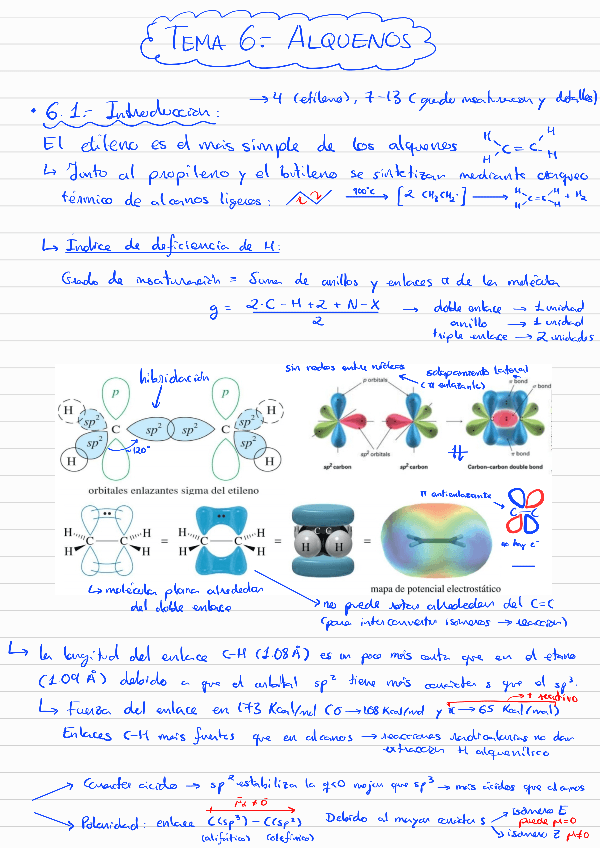 TEMA 6.- ALQUENOS
→ 4 (etileno), 7-13 (grado insaturación y detalles)
• 6.1.- Introducción:
El etileno es el más simple de los alquenos
H H C=C H H
↳ Junto al propileno y el butileno se sintetizan mediante craqueo
térmico de alcanos ligeros: 900°C → [2 CH3CH2·] → H H C=C H H + H2
↳ Índice de deficiencia de H:
Grado de insaturación = Suma de anillos y enlaces π de la molécula
g = 2·C - H + 2 + N - X / 2 → doble enlace → 1 unidad
anillo → 1 unidad
triple enlace → 2 unidades
hibridación
sin nodos entre núcleos
solapamiento lateral
(π enlazante)
p p
p orbitals
σ bond
π bond
H sp² sp² C sp² sp² C sp² sp² H
H H
~120°
sp² orbitals
sp² carbon sp² carbon Carbon–carbon double bond
orbitales enlazantes sigma del etileno
π antienlazante
H H C C H H = H H C C H H = C C H H =
C C
no hay e⁻
mapa de potencial electrostático
↳ molécula plana alrededor
del doble enlace
→ no puede rotar alrededor del C=C
(para interconvertir isómeros → reacción)
↳ la longitud del enlace C-H (1.08 Å) es un poco más corta que en el etano
(1.09 Å) debido a que el orbital sp² tiene más carácter s que el sp³.
→ + reactivo
↳ Fuerza del enlace en 173 Kcal/mol (σ → 108 Kcal/mol y π → 65 Kcal/mol)
Enlaces C-H más fuertes que en alcanos → reacciones radicalarias no dan
extracción H alquenílico
→ Carácter ácido → sp² estabiliza la q<0 mejor que sp³ → más ácidos que alcanos
→ Polaridad: enlace C(sp³) - C(sp²) Debido al mayor carácter s
μ ≠ 0
(alifático) (olefínico)
→ isómero E
puede μ=0
→ isómero Z μ≠0